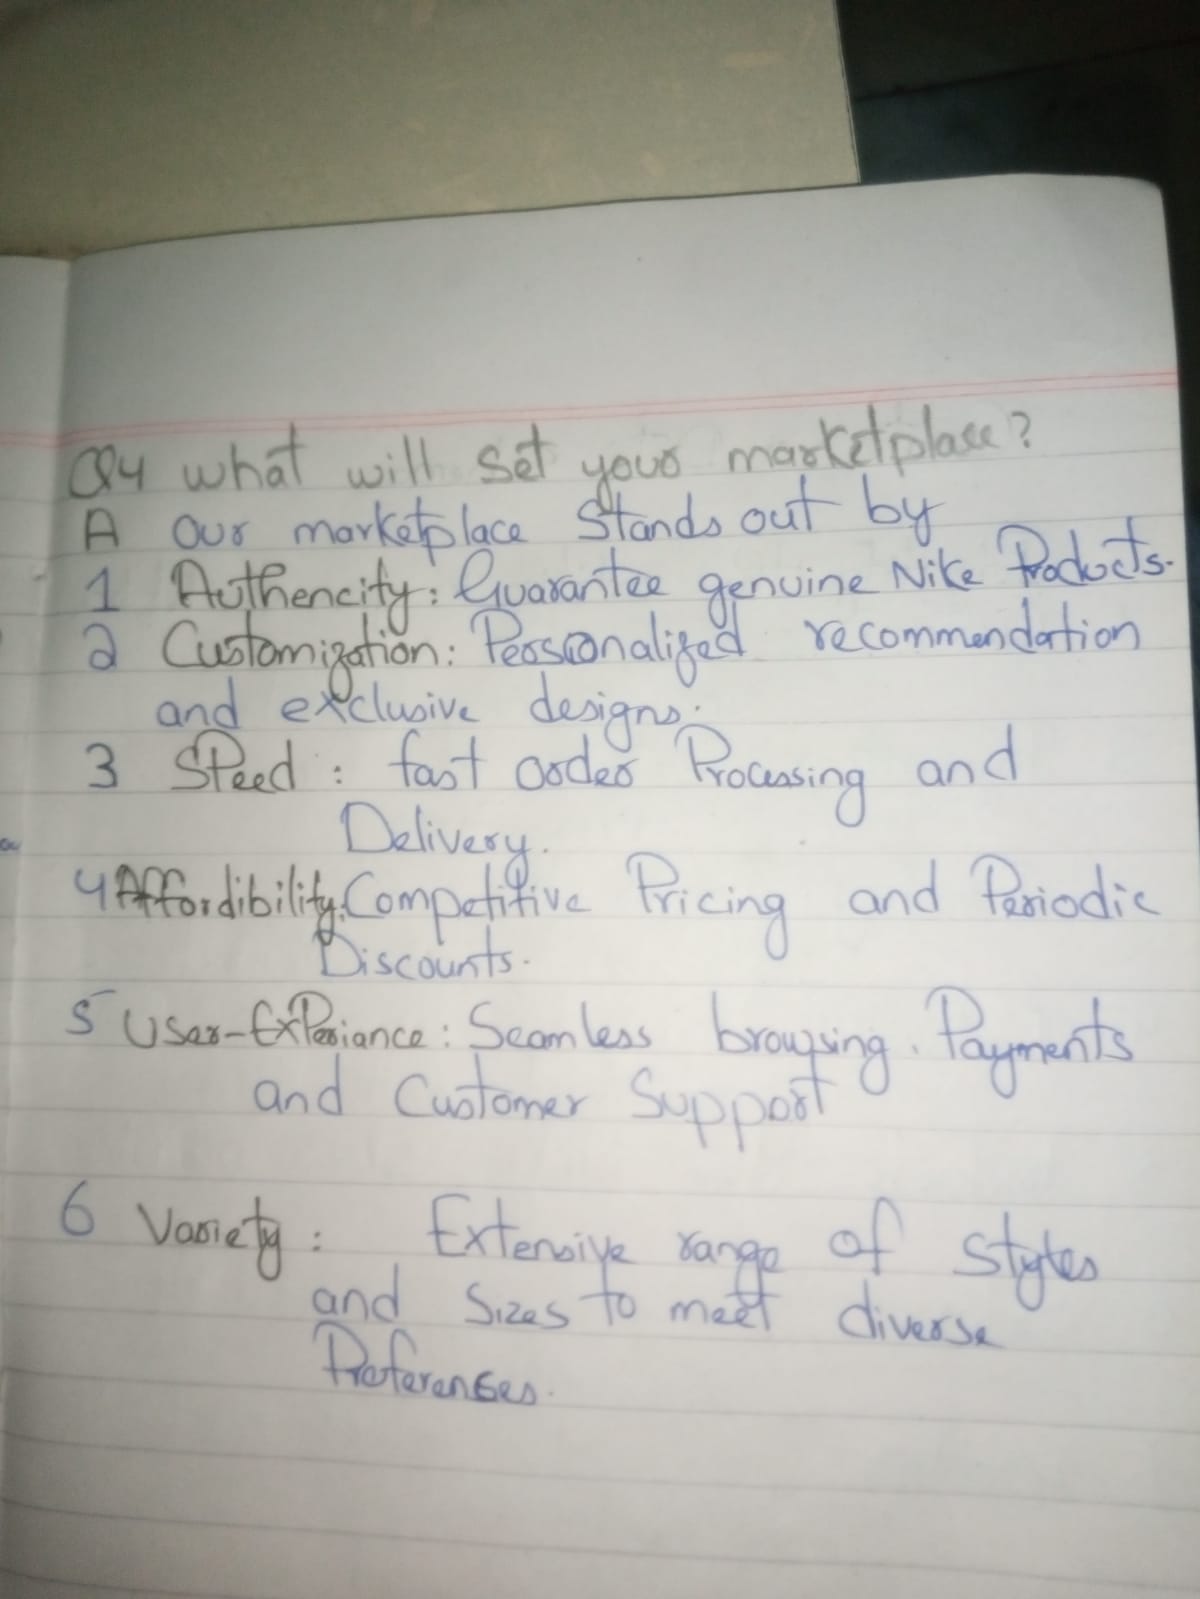 Q4 what will set your marketplace?
A our marketplace Stands out by
1 Authencity: Guarantee genuine Nike Products.
2 Customization: Perssonalized recommendation
and exclusive designs.
3 SPeed: fast order Processing and
Delivery.
4 Affordibility: Competitive Pricing and Periodic
Discounts.
5 User-ExPeriance: Seamless browsing. Payments
and Customer Support
6 Variety: Extensive range of styles
and Sizes to meet diverse
Preferenses.